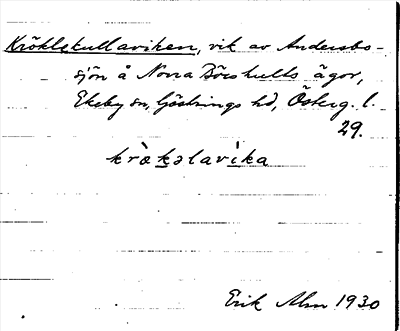 Krökleskullaviken, vik av Andersbo-
sjön å Norra Börshults ägor,
Ekeby sn, Göstrings hd, Österg. l.
29.
krækəlavika
Erik Alm 1930